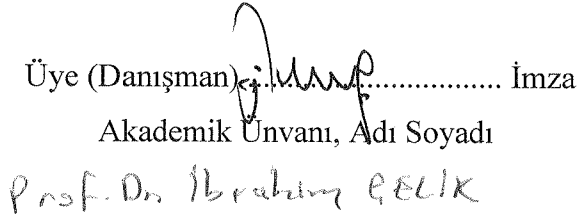 Üye (Danışman)................................. İmza
Akademik Ünvanı, Adı Soyadı
Prof. Dr. İbrahim ÇELİK